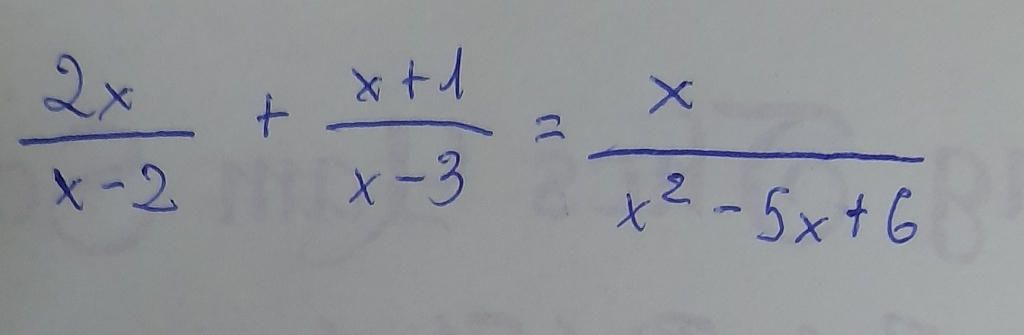 2x/(x-2) + (x+1)/(x-3) = x/(x²-5x+6)